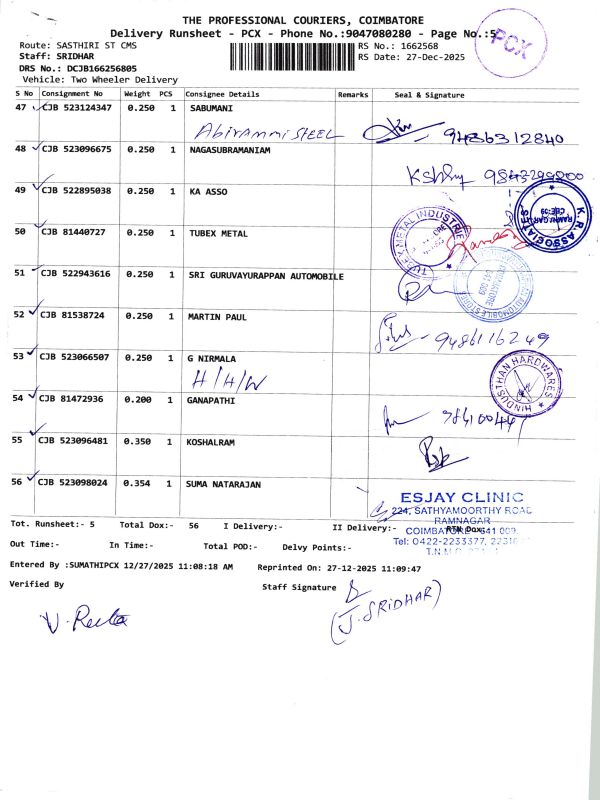 THE PROFESSIONAL COURIERS, COIMBATORE
Delivery Runsheet - PCX - Phone No.:9047080280 - Page No.:5
PCX
Route: SASTHIRI ST CMS
RS No.: 1662568
Staff: SRIDHAR
RS Date: 27-Dec-2025
DRS No.: DCJB166256805
Vehicle: Two Wheeler Delivery
S No Consignment No Weight PCS Consignee Details Remarks Seal & Signature
47 CJB 523124347 0.250 1 SABUMANI
Abirammi STEEL 9486312840
48 CJB 523096675 0.250 1 NAGASUBRAMANIAM
49 CJB 522895038 0.250 1 KA ASSO
K.R. ASSOCIATES
RAMNAGAR
CBE-09
50 CJB 81440727 0.250 1 TUBEX METAL
TUBEX METAL INDUSTRIE
51 CJB 522943616 0.250 1 SRI GURUVAYURAPPAN AUTOMOBILE
52 CJB 81538724 0.250 1 MARTIN PAUL
9486116249
53 CJB 523066507 0.250 1 G NIRMALA
H/H/W
HINDUSTHAN HARDWARES
54 CJB 81472936 0.200 1 GANAPATHI
55 CJB 523096481 0.350 1 KOSHALRAM
56 CJB 523098024 0.354 1 SUMA NATARAJAN
ESJAY CLINIC
224, SATHYAMOORTHY ROAD
RAMNAGAR
Tot. Runsheet:- 5 Total Dox:- 56 I Delivery:- II Delivery:- RTN Dox:-
COIMBATORE-641 009.
Tel: 0422-2233377,
Out Time:- In Time:- Total POD:- Delvy Points:-
Entered By :SUMATHIPCX 12/27/2025 11:08:18 AM Reprinted On: 27-12-2025 11:09:47
Verified By Staff Signature
(J. SRIDHAR)